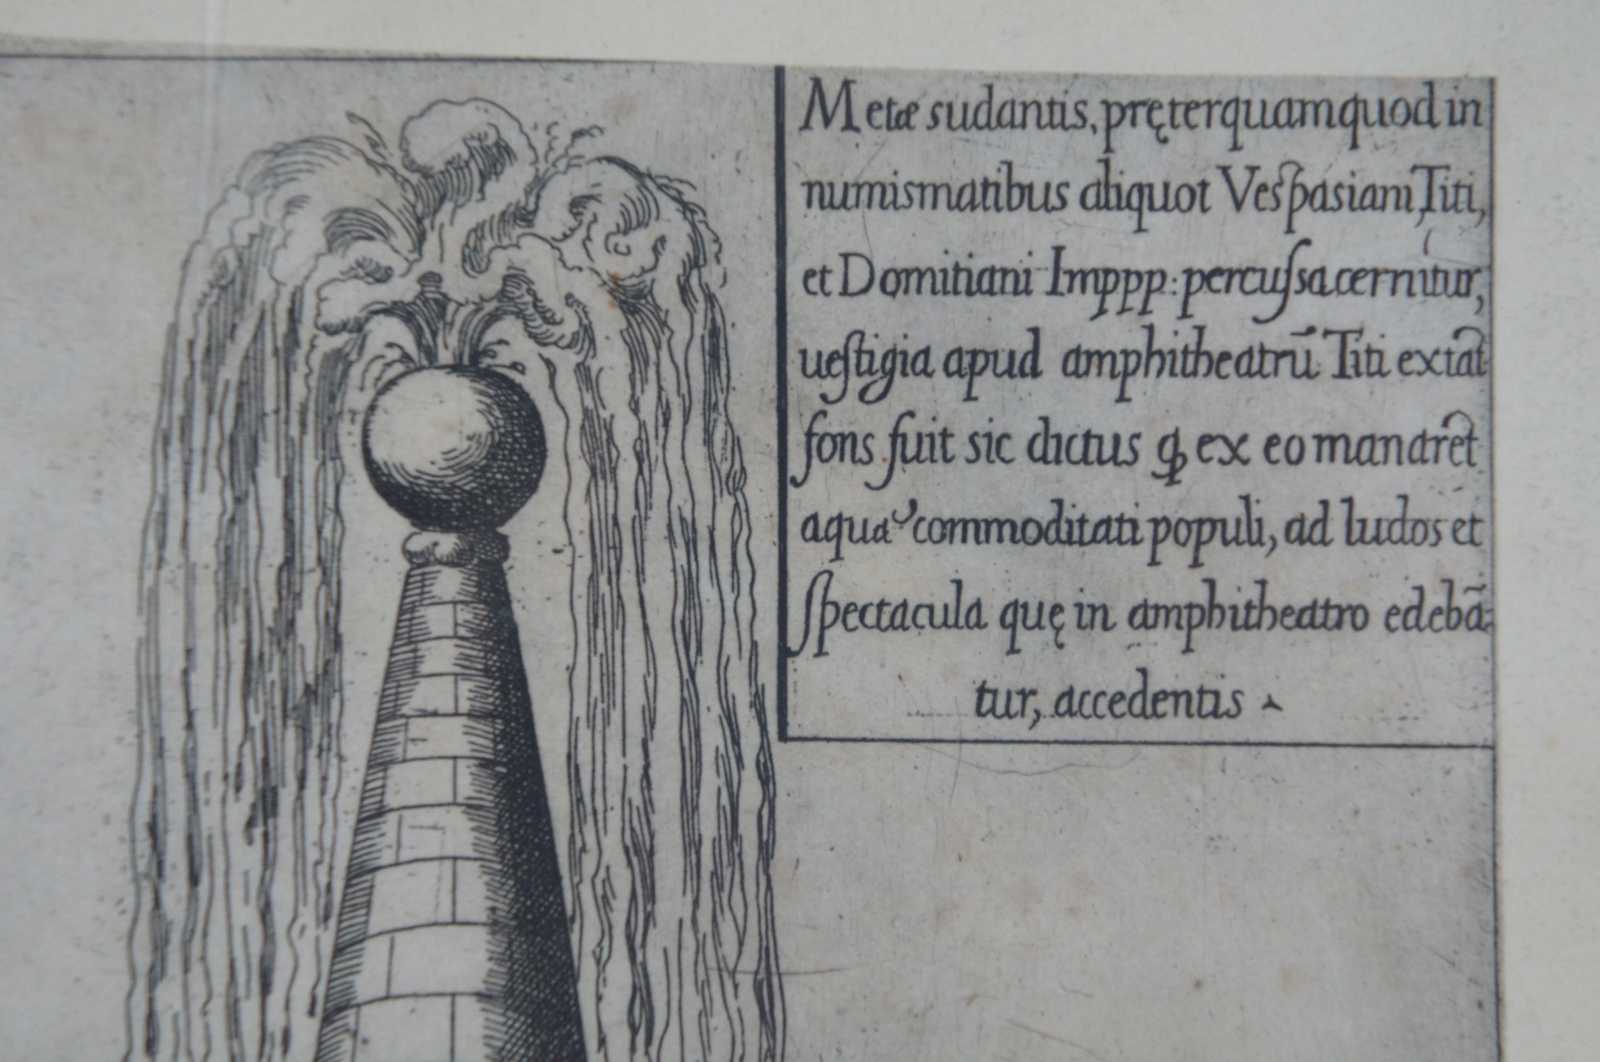 Metæ sudantis, pręterquamquod in
numismatibus aliquot Veſpasiani, Titi,
et Domitiani Imppp: percuſsa cernitur,
ueſtigia apud amphitheatrū Titi extāt
fons fuit sic dictus ꝙ ex eo manaret
aqua commoditati populi, ad ludos et
ſpectacula quę in amphitheatro edebā-
tur, accedentis